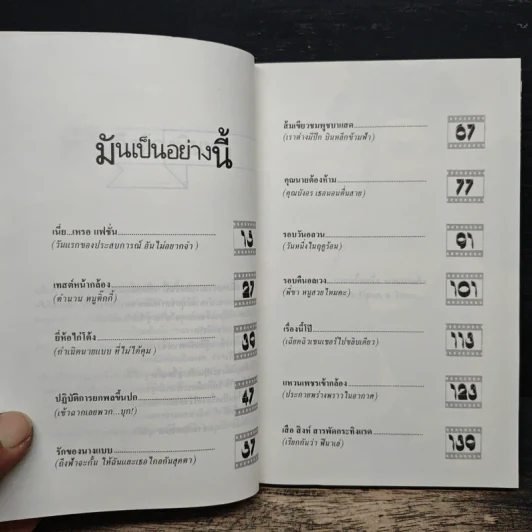 มันเป็นอย่างนี้
เนี่ย...เหรอ แฟชั่น 13
(วันแรกของประสบการณ์ อันไม่อยากจำ)
เทสต์หน้ากล้อง 27
(ตำนาน หนูติ๊กกี้)
ยี่ห้อไก่โต้ง 39
(กำเนิดนายแบบ ที่ไม่ได้คุม)
ปฏิบัติการยกพลขึ้นปก 47
(เข้าฉากเลยพวก...บุก!)
รักของนางแบบ 57
(ถึงฟ้าจะกั้น ให้ฉันและเธอไกลกันสุดตา)
ส้มเขียวชมพูขบาแสด 67
(เราต่างมีปีก บินหลีกข้ามฟ้า)
คุณนายต้องห้าม 77
(คุณบังอร เธอนอนตื่นสาย)
รอบวันอลวน 91
(วันหนึ่งในฤดูร้อน)
รอบคืนอลเวง 101
(พี่ขา หนูสวยไหมคะ)
เรื่องนี้โป๊ 113
(เฉียดฉิวเซนเซอร์ไปขลิบเดียว)
แหวนเพชรเข้ากล้อง 123
(ประกายพร่างพราวในอากาศ)
เสือ สิงห์ สารพัดกระทิงแรด 139
(เรียกกันว่า ฟีนาเล่)